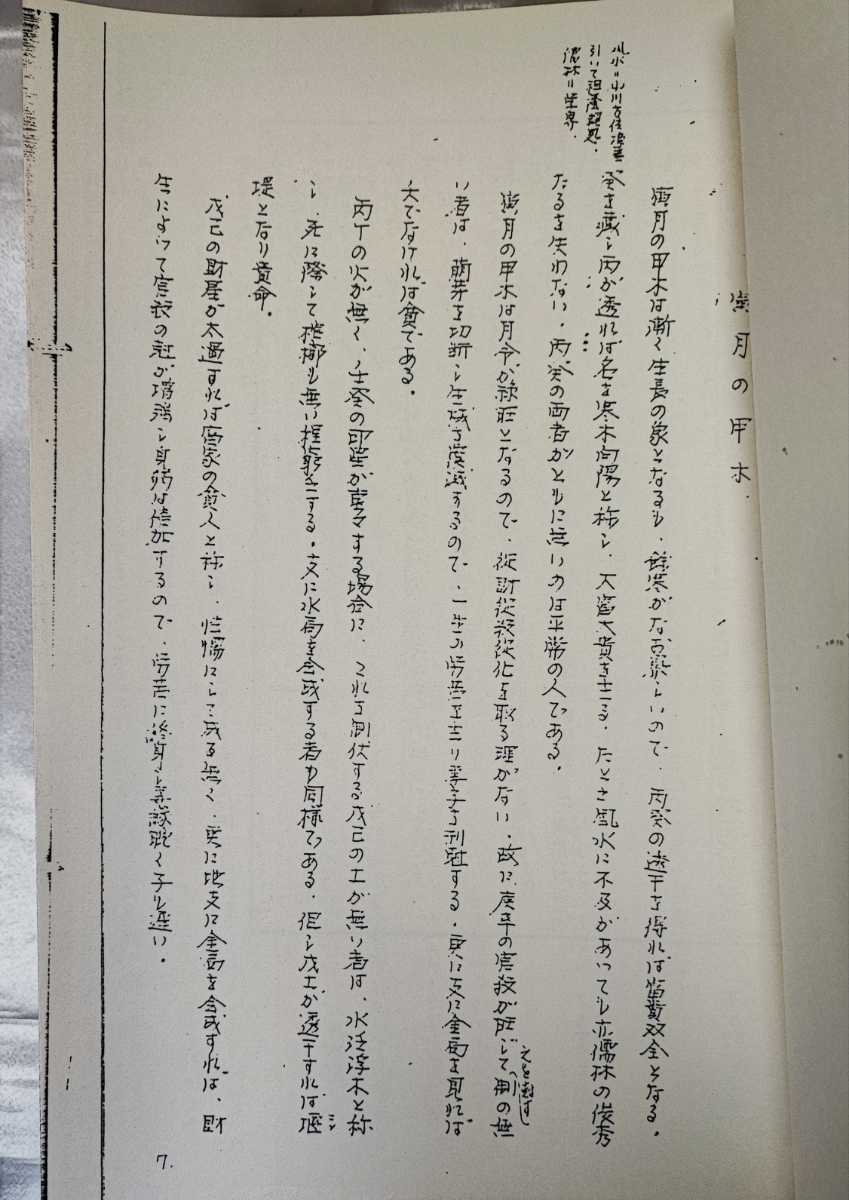 寅月の甲木
寅月の甲木は漸く生長の象となるも、余寒がなお厳しいので、丙癸の透干を得れば富貴双全となる。
癸を蔵し丙が透れば名を寒木向陽と称し、大富大貴を主る。たとえ風水に不及があっても亦儒林の俊秀
たるを失わない。丙癸の両者がともに無いのは平常の人である。
寅月の甲木は月令が禄旺となるので、従財従殺従化を取る理がない。故に庚辛の官殺が旺じて制の無
い者は、萌芽を切断し生城を減するので、一生の労苦を主り妻子を刑剋する。更に支に金局を取れば
夭でなければ貧である。
丙丁の火が無く、壬癸の印星が重々する場合に、これを制伏する戊己の土が無い者は、水泛浮木と称
し、死に際して棺槨も無い程を主る。支に水局を会成する者も同様である。但し戊土が透干すれば堰
堤となり貴命。
戊己の財星が太過すれば富家の貧人と称し、にして成る無く、更に地支に金局を会成すれば、財
生によって官殺の剋が増強し身弱は倍加するので、労苦に終身し妻縁晩く子も遅い。
風水＝
引いて
儒林＝
7.